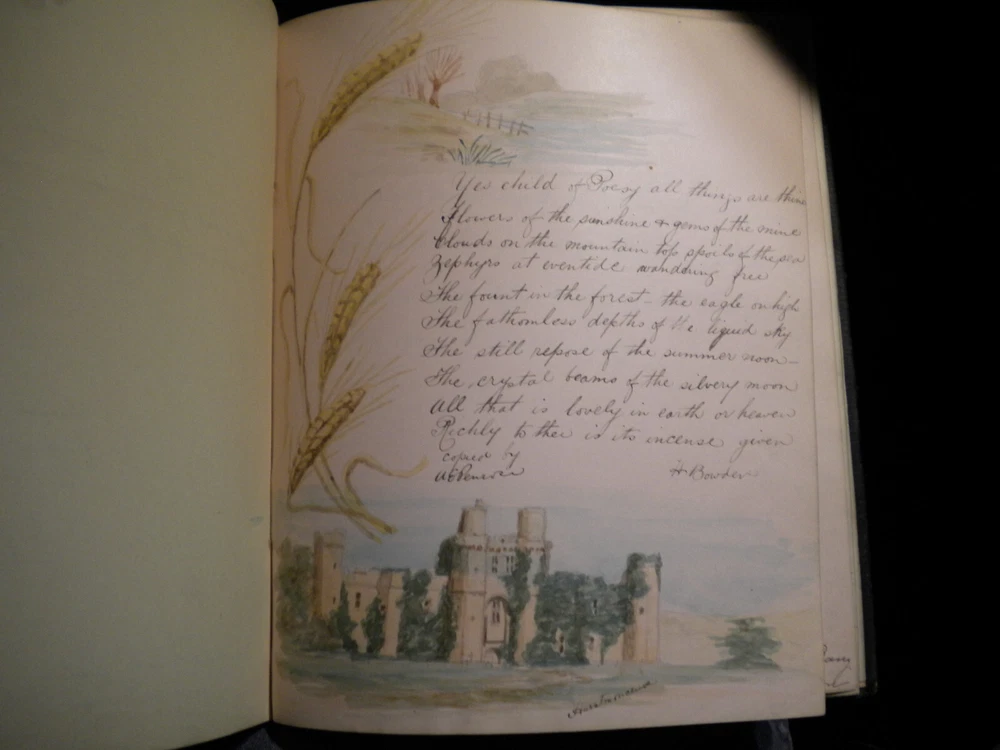 Yes child of Poesy all things are thine
Flowers of the sunshine & gems of the mine
Clouds on the mountain top spoils of the sea
Zephyrs at eventide wandering free
The fount in the forest - the eagle on high
The fathomless depths of the liquid sky
The still repose of the summer noon -
The crystal beams of the silvery moon
All that is lovely in earth or heaven
Richly to thee is its incense given
copied by
H Bowden